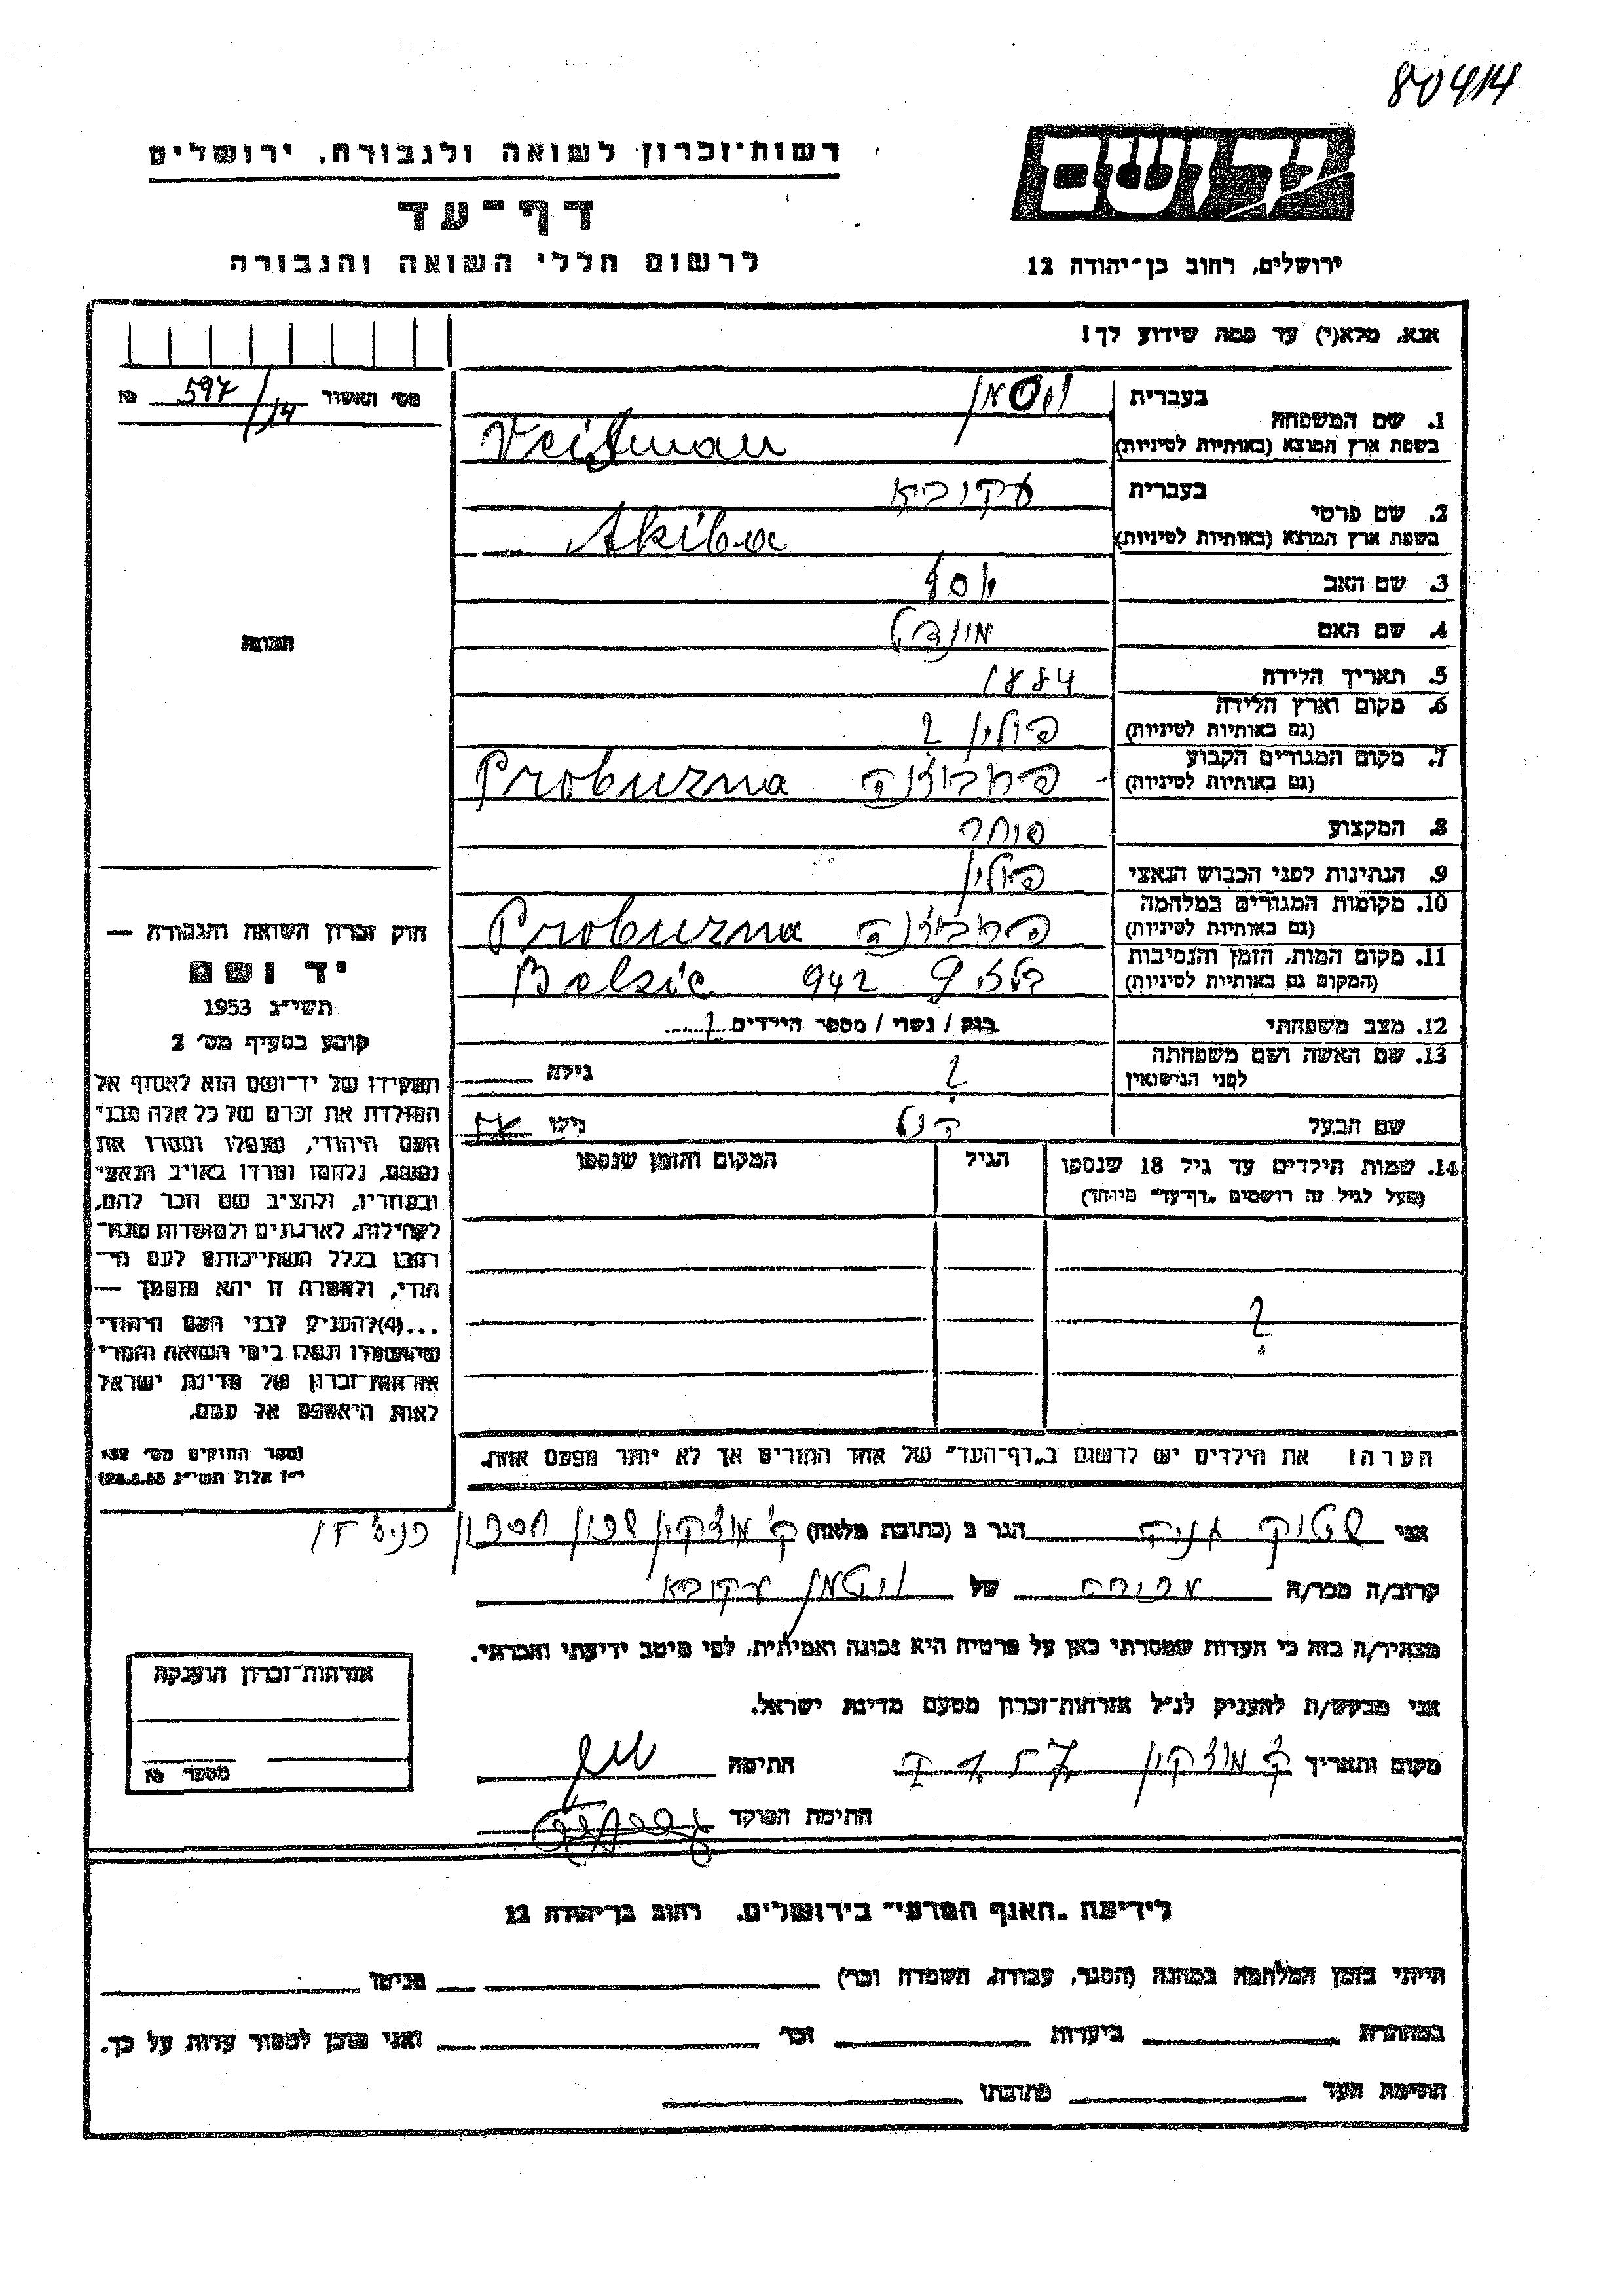 80414
רשות־זכרון לשואה ולגבורה, ירושלים
דף־עד
לרשום חללי השואה והגבורה
יד ושם
ירושלים, רחוב בן־יהודה 12
אנא, מלא(י) עד כמה שידוע לך!
מס׳ האשור 597/14 №
1. שם המשפחה
בעברית
בשפת ארץ המוצא (באותיות לטיניות)
Veisman
2. שם פרטי
בעברית עקיבא
בשפת ארץ המוצא (באותיות לטיניות) Akiba
3. שם האב יוסף
4. שם האם
5. תאריך הלידה 1884
6. מקום וארץ הלידה
(גם באותיות לטיניות) פולין ?
7. מקום המגורים הקבוע
(גם באותיות לטיניות) פרבוזנה Probuzna
8. המקצוע סוחר
9. הנתינות לפני הכבוש הנאצי פולין
10. מקומות המגורים במלחמה
(גם באותיות לטיניות) פרבוזנה Probuzna
11. מקום המות, הזמן והנסיבות
(המקום גם באותיות לטיניות) 942 Belzic
12. מצב משפחתי רווק / נשוי / מספר הילדים ?
13. שם האשה ושם משפחתה
לפני הנישואין ? גילה
שם הבעל הנ״ל גילו
14. שמות הילדים עד גיל 18 שנספו
(מעל לגיל זה רושמים „דף־עד״ מיוחד)
הגיל
המקום והזמן שנספו
?
הערה! את הילדים יש לרשום ב„דף־העד״ של אחד ההורים אך לא יותר מפעם אחת.
תמונה
חוק זכרון השואה והגבורה —
יד ושם
תשי״ג 1953
קובע בסעיף מס׳ 2
תפקידו של יד־ושם הוא לאסוף אל
המולדת את זכרם של כל אלה מבני
העם היהודי, שנפלו ומסרו את
נפשם, נלחמו ומרדו באויב הנאצי
ובעוזריו, ולהציב שם וזכר להם,
לקהילות, לארגונים ולמוסדות שנח־
רבו בגלל השתייכותם לעם הי־
הודי, ולמטרה זו יהא מוסמך —
...(4) להעניק לבני העם היהודי
שהושמדו ונפלו בימי השואה והמרי
אזרחות־זכרון של מדינת ישראל
לאות היאספם אל עמם.
(ספר החוקים מס׳ 132
י״ז אלול תשי״ג (28.8.53)
אני הגר ב (כתובת מלאה) ק׳ מוצקין שכון
קרוב/ה מכר/ה מכירה של ויסמן עקיבא
מצהיר/ה בזה כי העדות שמסרתי כאן על פרטיה היא נכונה ואמיתית, לפי מיטב ידיעתי והכרתי.
אני מבקש/ת להעניק לנ״ל אזרחות־זכרון מטעם מדינת ישראל.
מקום ותאריך ק׳ מוצקין חתימה
חתימת הפוקד
אזרחות־זכרון הוענקה
מספר №
לידיעת „האגף המדעי״ בירושלים, רחוב בן־יהודה 12
הייתי בזמן המלחמה במחנה (הסגר, עבודה, השמדה וכו׳) בגיטו
במחתרת ביערות וכו׳ ואני מוכן למסור עדות על כך.
חתימת העד כתובתו